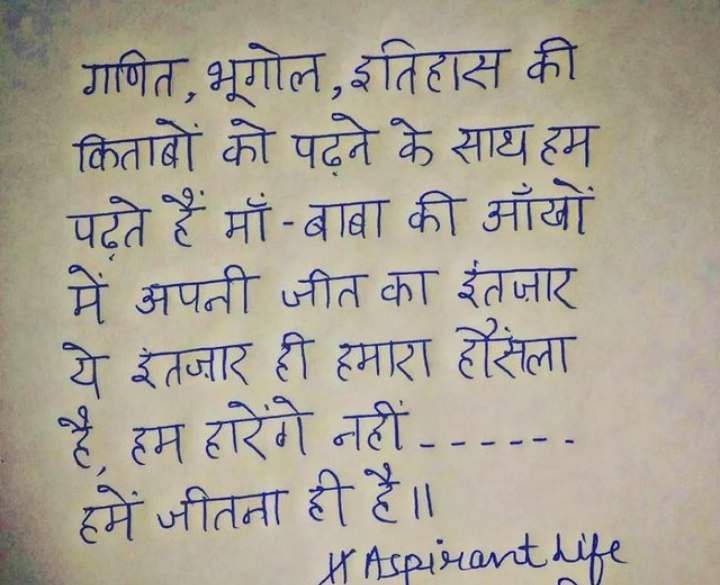 गणित, भूगोल, इतिहास की
किताबों को पढ़ने के साथ हम
पढ़ते हैं माँ - बाबा की आँखों
में अपनी जीत का इंतज़ार
ये इंतज़ार ही हमारा हौसंला
है, हम हारेंगे नहीं ------
हमें जीतना ही है॥
# Aspirant Life